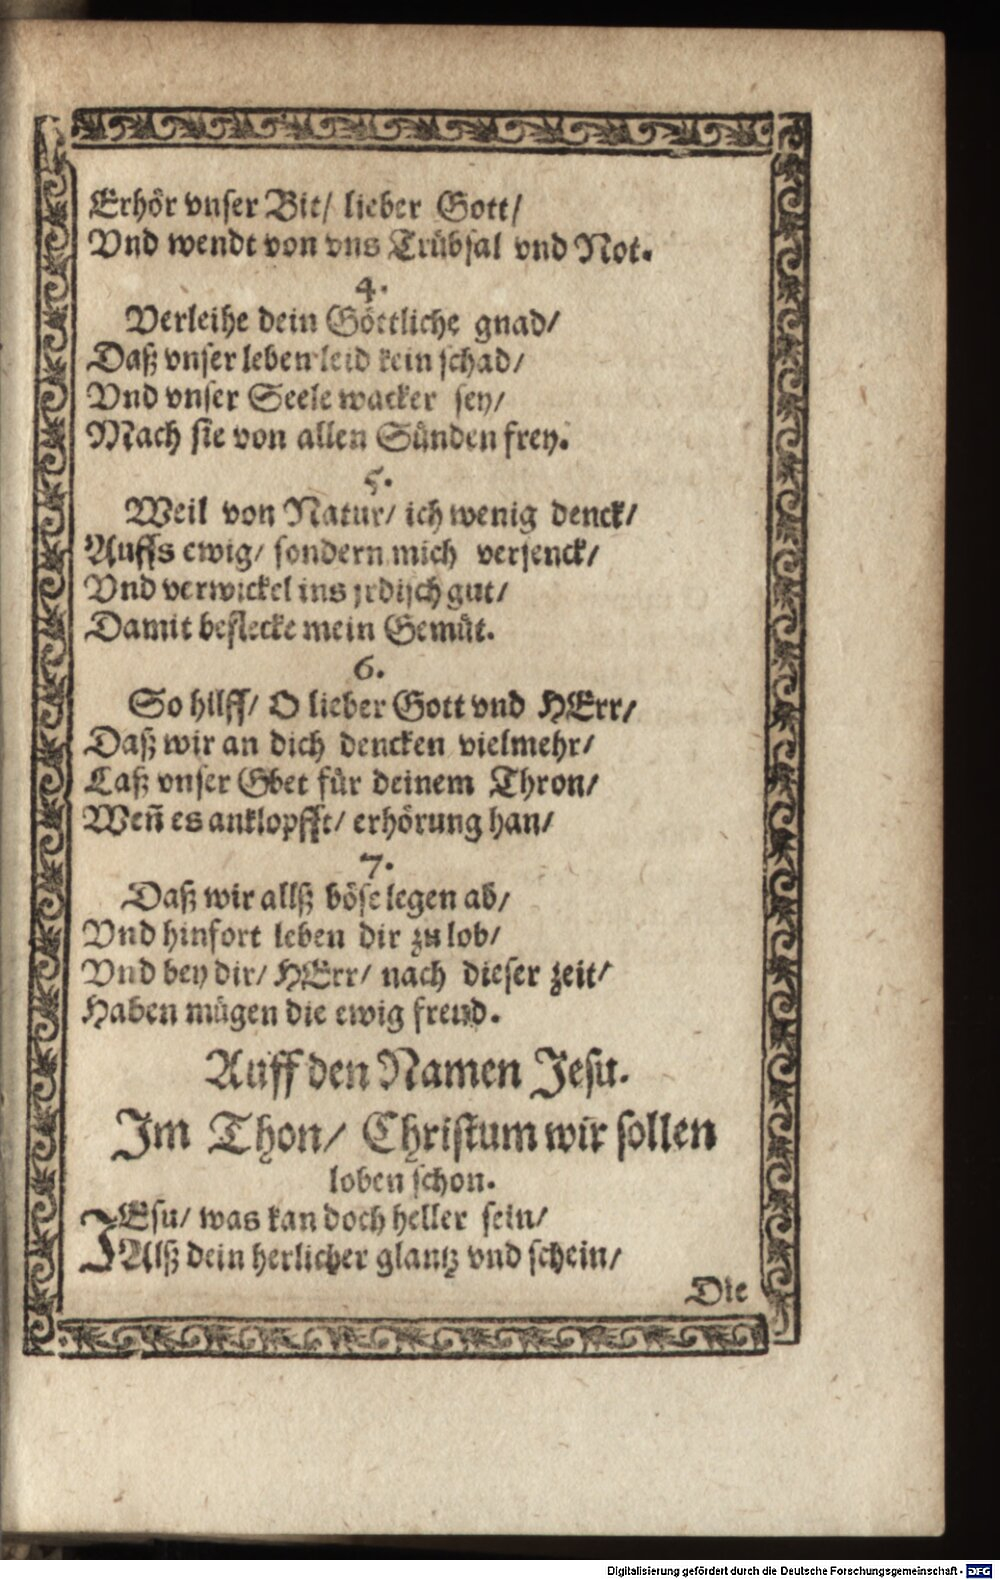 Erhör vnser Bit/ lieber Gott/
Vnd wendt von vns Trübsal vnd Not.
4.
Verleihe dein Göttliche gnad/
Daß vnser leben leid kein schad/
Vnd vnser Seele wacker sey/
Mach sie von allen Sünden frey.
5.
Weil von Natur/ ich wenig denck/
Auffs ewig/ sondern mich versenck/
Vnd verwickel ins jrdisch gut/
Damit beflecke mein Gemüt.
6.
So hilff/ O lieber Gott vnd HErr/
Daß wir an dich dencken vielmehr/
Laß vnser Gbet für deinem Thron/
Weñ es anklopfft/ erhörung han/
7.
Daß wir allß böse legen ab/
Vnd hinfort leben dir zu lob/
Vnd bey dir/ HErr/ nach dieser zeit/
Haben mügen die ewig freud.
Auff den Namen Jesu.
Im Thon/ Christum wir sollen
loben schon.
JEsu/ was kan doch heller sein/
Alß dein herlicher glantz vnd schein/
Die
Digitalisierung gefördert durch die Deutsche Forschungsgemeinschaft - DFG